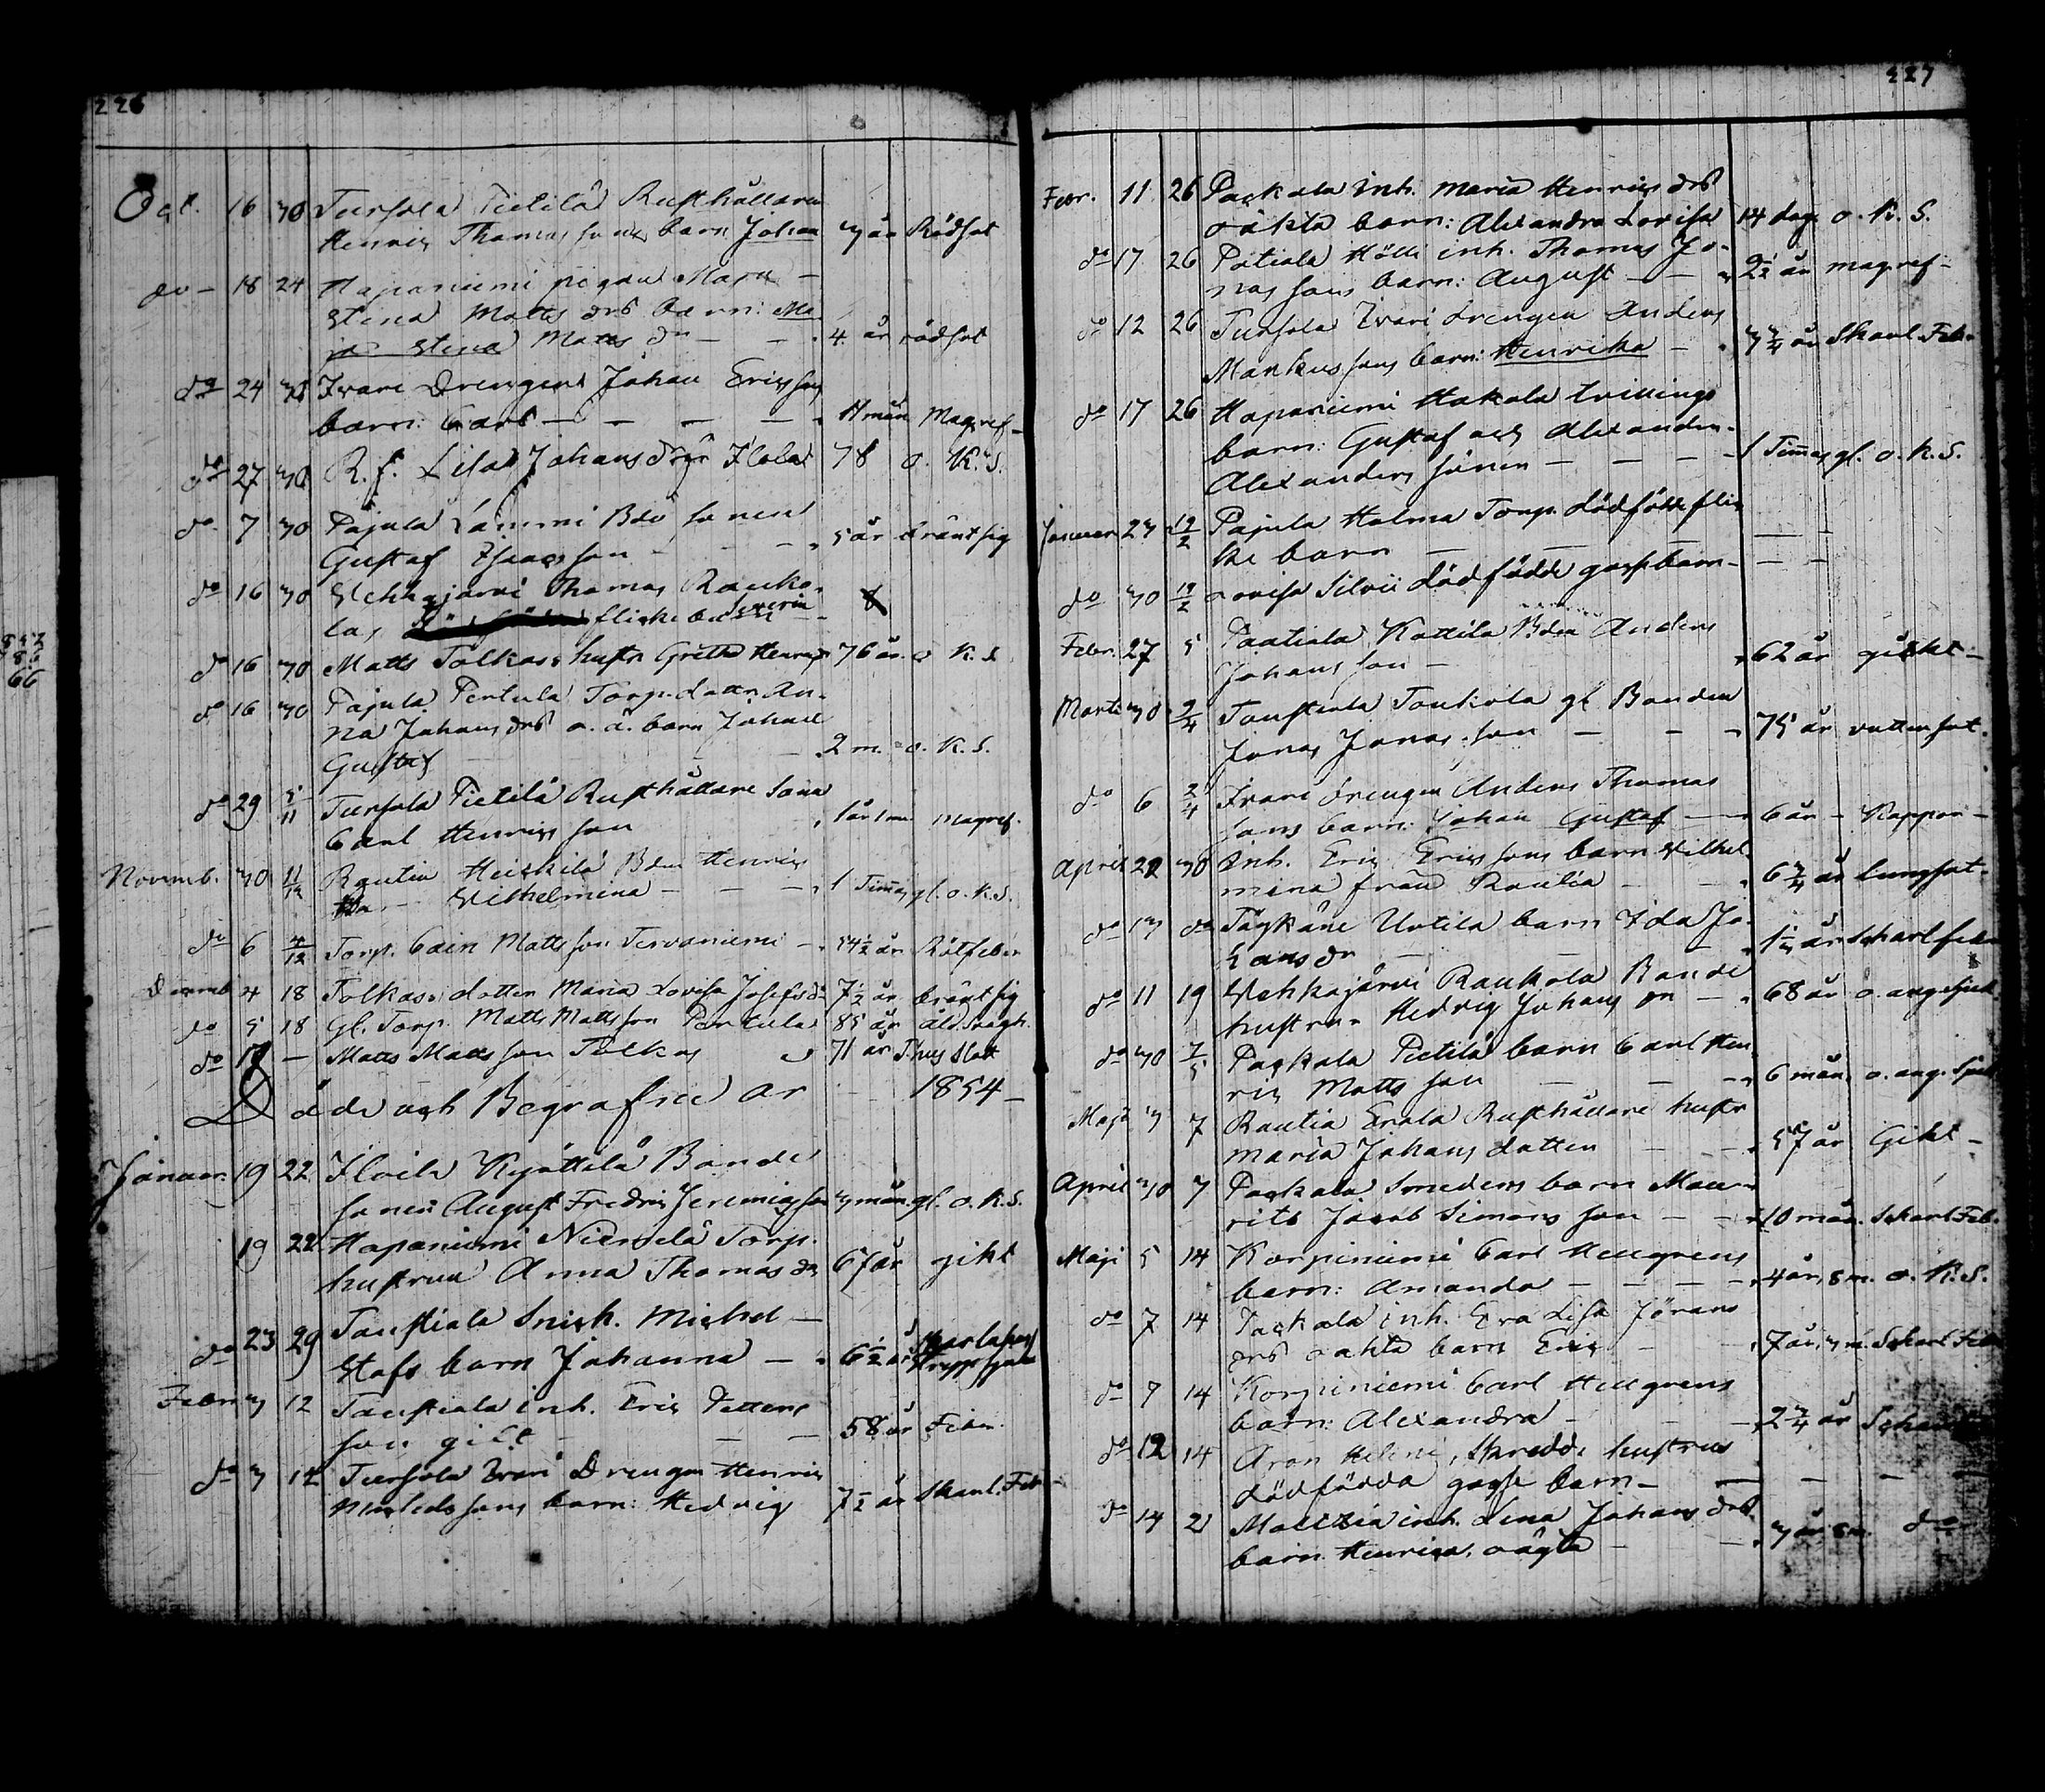 226
Oct. 16 30 Tursola Pietilä Rusthållaren
Henric Thomas sons barn Johan 3 år Rödsot
do – 18 24 Haponiemi pigan Maja –
Stina Matts drs barn: Ma
ja Stina Matts dr – – 4 år rödsot
do 24 30 Ivari Drengens Johan Ericssons
barn: Carl – – – – 11 mån Magref –
do 27 30 R. f. Lisa Johans dr fr Ilola 78 o. K. S.
do 7 30 Pajula Lammi Bde sonen
Gustaf Isacsson – – – 5 år dränt sig
do 16 30 Wehkajärvi Thomas Rauko
las flicke barn
do 16 30 Matts Tolkass hustr Greta Henrics 76 år o K. S
do 16 30 Pajula Pertula Torp. dottr An-
na Johans drs o. ä. barn Johan
Gustaf – 2 m. o. K. S.
do 29 5/11 Tursola Pietilä Rusthållare Sone
Carl Henricsson 1 år 1 m magref.
Novemb. 30 11/12 Rautia Heickilä Bden Henrics
Wilhelmina – – – 1 Timma gl. o. K. S.
do 6 4/12 Torp. Cain Mattsson Tervaniemi – 54½ år Rötfeber
Decemb 4 18 Tolkass dotter Maria Lovisa Josefsdr 7½ år bränt sig
do 5 18 Gl. Torp. Matts Mattsson Pertula 85 år åld. svagh.
do 17 – Matts Mattsson Tolkas 71 år
Döde och Begrafne År 1854 –
Januar. 19 22 Iloila Kyöttilä Bonde
sonen August Fredric Jeremiasson 3 mån. gl. o. K. S.
19 22 Haponiemi Niemelä Torp.
hustrun Anna Thomas dr 67 år gikt
do 23 29 Taustiala Snick. Michel –
Stafs barn Johanna – 6½ år
Febr 3 12 Taustiala inh. Eric Petters
son gift – – 58 år Feber.
do 3 12 Tursola Ivari Drengen Henric
sons barn: Hedvig 7½ år Skarl. Feb –
227
Febr. 11 26 Packala Inh. Maria Henrics drs
oäkta barn: Alexandra Lovisa 14 dag. o. K. S.
do 17 26 Pätiala Hölli inh. Thomas Jo-
nas sons barn: August – – 2½ år magref –
do 12 26 Tursola Ivari drengen Anders
Markus sons barn: Henrika – 3¾ år Skarl. Feb.
do 17 26 Haponiemi Hakala tvillings
barn: Gustaf och Alexander
Alexanders söner – – – 1 Timmas gl. o. K. S.
Januar 23 12/2 Pajula Halma Torp. dödfödt flic
ke barn – – –
do 30 12/2 Lovisa Silvii dödfödde gossebarn – – –
Febr. 27 5 Paatiala Kottila Bden Anders
Johans son – 62 år gickt –
Marti 30 2/4 Taustiala Toukola gl. Bonden
Jonas Jonas son – – – 75 år vattusot.
do 6 2/4 Ivari drengen Anders Thomas
sons barn: Johan Gustaf – 6 år – Koppor –
April 22 30 Inh. Eric Ericssons barn Wilhel
mina från Rautia – 6¾ år lungsot –
do 13 do Tägkäne Uotila barn Ida Jo-
hans dr – – 1¼ år Scharlfeber
do 11 19 Wehkajärvi Raukola Bonde
hustrun Hedvig Johans dr – 68 år o. ang. sjuk
do 30 7/5 Packala Pietilä barn Carl Hen
ric Matts son – – 6 mån. o. ang. sjuk
Maji 3 7 Rautia Erola Rusthållare hustr
Maria Johans dotter – – 57 år Gikt –
April 30 7 Packala Smedens barn Mau-
ritz Jacob Simons son – – 10 mån. Skarl Feb.
Maji 5 14 Korpiniemi Carl Hellgrens
barn: Amanda – – – – 4 år, 8 m. o. K. S.
do 7 14 Packala inh. Eva Lisa Jörans
drs oäkta barn Eric – – 7 år, 3 m. Scharl Feb
do 7 14 Korpiniemi Carl Hellgrens
barn: Alexandra – – 2¾ år
do 12 14 Aron Skredde hustrus
dödfödda gosse barn – – – –
do 14 21 inh. Lena Johans drs
barn Henrica, oägta – – 3 år 8 m. do